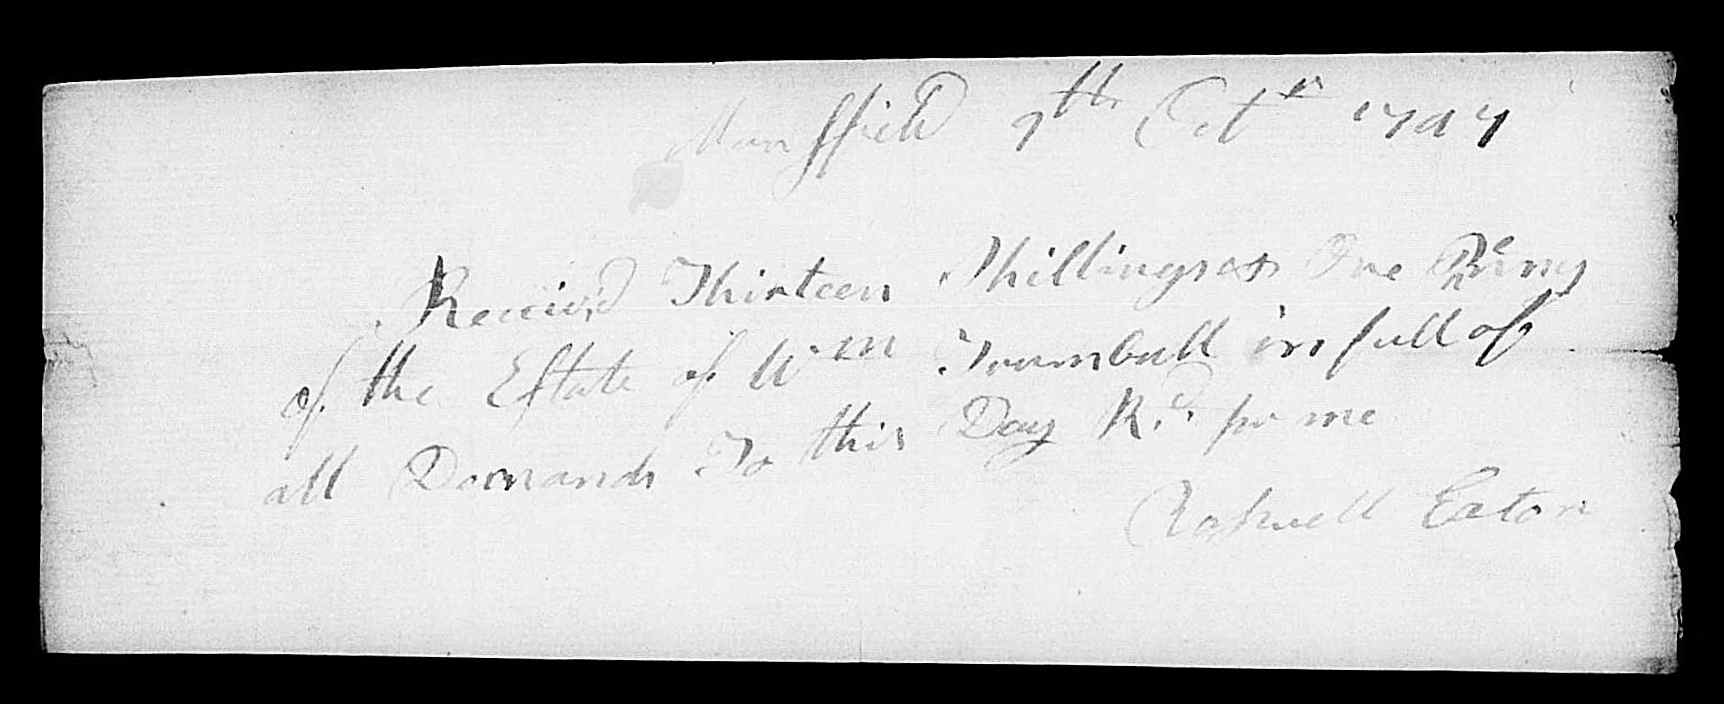 Mansfield 7th Octr 1797
Receiv,d Thirteen Shillings & One Penny
of the Estate of Wm Trumbull in full of
all Demands To this Day R.d pr me
Roswell Eaton